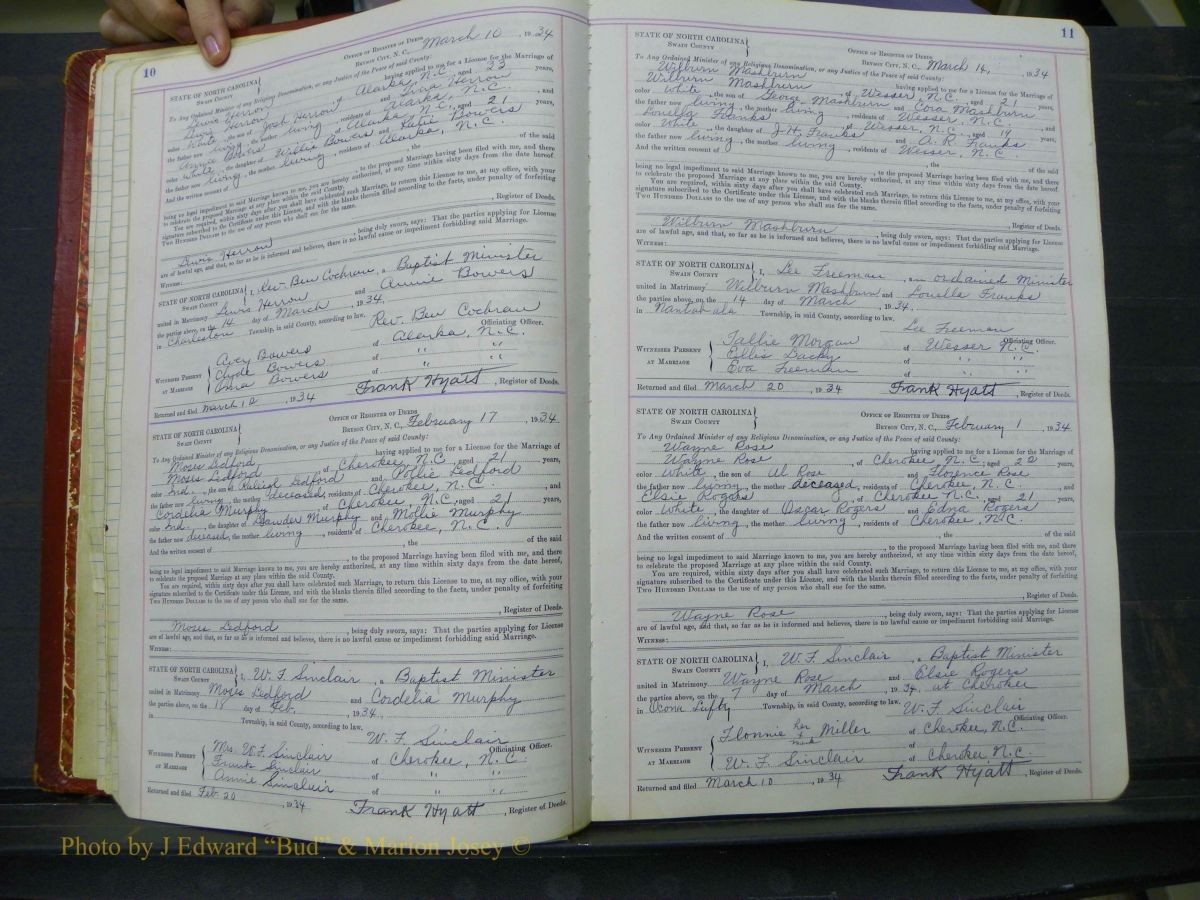 10
OFFICE OF REGISTER OF DEEDS
BRYSON CITY, N. C., March 10, 1934
STATE OF NORTH CAROLINA
SWAIN COUNTY
To Any Ordained Minister of any Religious Denomination, or any Justice of the Peace of said County:
Lewis Herron having applied to me for a License for the Marriage of
Lewis Herron of Alarka, N.C. aged 23 years,
color White, the son of Josh Herron and Herron
the father now living, the mother living, residents of Alarka, N.C. and
Annie Bowers of Alarka, N.C., aged 21 years,
color White, daughter of Willie Bowers and Bowers
the father now living, the mother living, residents of Alarka, N.C.
And the written consent of , the of the said
, to the proposed Marriage having been filed with me, and there
being no legal impediment to said Marriage known to me, you are hereby authorized, at any time within sixty days from the date hereof,
to celebrate the proposed Marriage at any place within the said County.
You are required, within sixty days after you shall have celebrated such Marriage, to return this License to me, at my office, with your
signature subscribed to the Certificate under this License, and with the blanks therein filled according to the facts, under penalty of forfeiting
TWO HUNDRED DOLLARS to the use of any person who shall sue for the same.
, Register of Deeds.
Lewis Herron, being duly sworn, says: That the parties applying for License
are of lawful age, and that, so far as he is informed and believes, there is no lawful cause or impediment forbidding said Marriage.
Witness:
STATE OF NORTH CAROLINA
SWAIN COUNTY
I, Rev. Ben Cochran, a Baptist Minister
united in Matrimony Lewis Herron and Annie Bowers
the parties above, on the 14 day of March, 1934,
in Charleston Township, in said County, according to law.
Rev. Ben Cochran
Officiating Officer.
WITNESSES PRESENT AT MARRIAGE
Avey Bowers of Alarka, N.C.
Clyde Bowers of " "
Bowers of " "
Returned and filed March 1934 Frank Hyatt, Register of Deeds.
OFFICE OF REGISTER OF DEEDS
BRYSON CITY, N. C., February 17, 1934
STATE OF NORTH CAROLINA
SWAIN COUNTY
To Any Ordained Minister of any Religious Denomination, or any Justice of the Peace of said County:
Moses Ledford having applied to me for a License for the Marriage of
Moses Ledford of Cherokee, N.C., aged 21 years,
color Ind., the son of Raleigh Ledford and Pollie Ledford
the father now living, the mother deceased, residents of Cherokee, N.C., and
Cordelia Murphy of Cherokee, N.C., aged 21 years,
color Ind., daughter of Leander Murphy and Mollie Murphy
the father now deceased, the mother living, residents of Cherokee, N.C.
And the written consent of , the of the said
, to the proposed Marriage having been filed with me, and there
being no legal impediment to said Marriage known to me, you are hereby authorized, at any time within sixty days from the date hereof,
to celebrate the proposed Marriage at any place within the said County.
You are required, within sixty days after you shall have celebrated such Marriage, to return this License to me, at my office, with your
signature subscribed to the Certificate under this License, and with the blanks therein filled according to the facts, under penalty of forfeiting
TWO HUNDRED DOLLARS to the use of any person who shall sue for the same.
, Register of Deeds.
Moses Ledford, being duly sworn, says: That the parties applying for License
are of lawful age, and that, so far as he is informed and believes, there is no lawful cause or impediment forbidding said Marriage.
Witness:
STATE OF NORTH CAROLINA
SWAIN COUNTY
I, W. F. Sinclair, a Baptist Minister
united in Matrimony Moses Ledford and Cordelia Murphy
the parties above, on the 18 day of Feb., 1934,
in Township, in said County, according to law.
W. F. Sinclair
Officiating Officer.
WITNESSES PRESENT AT MARRIAGE
Mrs. W.F. Sinclair of Cherokee, N.C.
Frank Sinclair of " "
Annie Sinclair of " "
Returned and filed Feb. 20, 1934 Frank Hyatt, Register of Deeds.
11
STATE OF NORTH CAROLINA
SWAIN COUNTY
OFFICE OF REGISTER OF DEEDS
BRYSON CITY, N. C., March 14, 1934
To Any Ordained Minister of any Religious Denomination, or any Justice of the Peace of said County:
Wilburn Mashburn having applied to me for a License for the Marriage of
Wilburn Mashburn of Wesser, N.C., aged 21 years,
color White, the son of George Mashburn and Cora Mashburn
the father now living, the mother living, residents of Wesser, N.C., and
Louella Franks of Wesser, N.C., aged 19 years,
color White, the daughter of J. H. Franks and A. R. Franks
the father now living, the mother living, residents of Wesser, N.C.
And the written consent of , the of the said
, to the proposed Marriage having been filed with me, and there
being no legal impediment to said Marriage known to me, you are hereby authorized, at any time within sixty days from the date hereof,
to celebrate the proposed Marriage at any place within the said County.
You are required, within sixty days after you shall have celebrated such Marriage, to return this License to me, at my office, with your
signature subscribed to the Certificate under this License, and with the blanks therein filled according to the facts, under penalty of forfeiting
TWO HUNDRED DOLLARS to the use of any person who shall sue for the same.
, Register of Deeds.
Wilburn Mashburn, being duly sworn, says: That the parties applying for License
are of lawful age, and that, so far as he is informed and believes, there is no lawful cause or impediment forbidding said Marriage.
WITNESS:
STATE OF NORTH CAROLINA
SWAIN COUNTY
I, Lee Freeman, an ordained Minister
united in Matrimony Wilburn Mashburn and Louella Franks
the parties above, on the 14 day of March, 1934,
in Nantahala Township, in said County, according to law.
Lee Freeman
Officiating Officer.
WITNESSES PRESENT AT MARRIAGE
Tallie Morgan of Wesser N.C.
Ellis of " "
Eva Freeman of " "
Returned and filed March 20, 1934 Frank Hyatt, Register of Deeds.
STATE OF NORTH CAROLINA
SWAIN COUNTY
OFFICE OF REGISTER OF DEEDS
BRYSON CITY, N. C., February 1, 1934
To Any Ordained Minister of any Religious Denomination, or any Justice of the Peace of said County:
Wayne Rose having applied to me for a License for the Marriage of
Wayne Rose, of Cherokee N.C., aged 22 years,
color White, the son of Al Rose and Florence Rose
the father now living, the mother deceased, residents of Cherokee, N.C., and
Elsie Rogers of Cherokee N.C., aged 21 years,
color White, the daughter of Oscar Rogers and Edna Rogers
the father now living, the mother living, residents of Cherokee, N.C.
And the written consent of , the of the said
, to the proposed Marriage having been filed with me, and there
being no legal impediment to said Marriage known to me, you are hereby authorized, at any time within sixty days from the date hereof,
to celebrate the proposed Marriage at any place within the said County.
You are required, within sixty days after you shall have celebrated such Marriage, to return this License to me, at my office, with your
signature subscribed to the Certificate under this License, and with the blanks therein filled according to the facts, under penalty of forfeiting
TWO HUNDRED DOLLARS to the use of any person who shall sue for the same.
, Register of Deeds.
Wayne Rose, being duly sworn, says: That the parties applying for License
are of lawful age, and that, so far as he is informed and believes, there is no lawful cause or impediment forbidding said Marriage.
WITNESS:
STATE OF NORTH CAROLINA
SWAIN COUNTY
I, W. F. Sinclair, a Baptist Minister
united in Matrimony Wayne Rose and Elsie Rogers
the parties above, on the 7 day of March, 1934, at Cherokee
in Ocona Lufty Township, in said County, according to law.
W. F. Sinclair
Officiating Officer.
WITNESSES PRESENT AT MARRIAGE
Flonnie her x mark Miller of Cherokee, N.C.
of
W. F. Sinclair of Cherokee, N.C.
Returned and filed March 10, 1934 Frank Hyatt, Register of Deeds.
Photo by J Edward "Bud" & Marion Josey ©